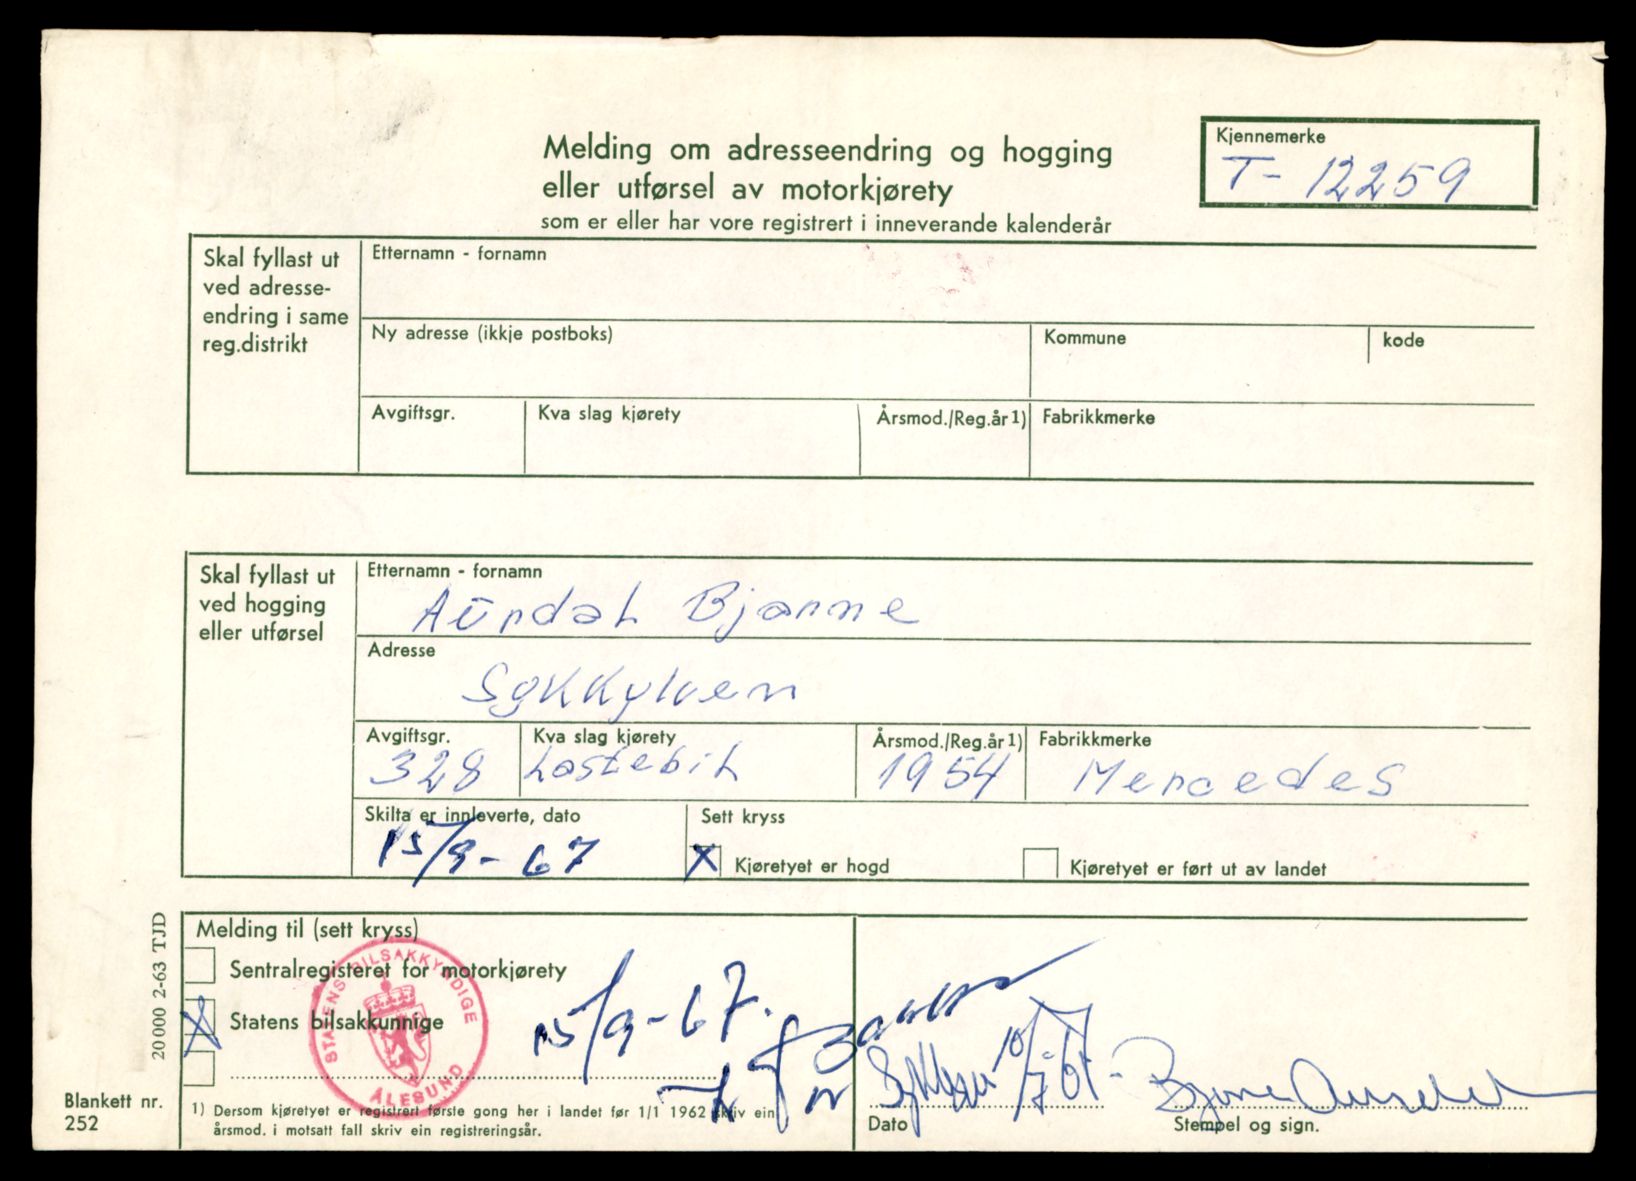 Melding om adresseendring og hogging
eller utførsel av motorkjørety
som er eller har vore registrert i inneverande kalenderår
Kjennemerke
T- 12259
Skal fyllast ut
ved adresse-
endring i same
reg.distrikt
Etternamn - fornamn
Ny adresse (ikkje postboks)
Kommune
kode
Avgiftsgr.
Kva slag kjørety
Årsmod./Reg.år 1)
Fabrikkmerke
Skal fyllast ut
ved hogging
eller utførsel
Etternamn - fornamn
Aurdal Bjarne
Adresse
Sykkylven
Avgiftsgr.
328
Kva slag kjørety
Lastebil
Årsmod./Reg.år 1)
1954
Fabrikkmerke
Mercedes
Skilta er innleverte, dato
15/9-67
Sett kryss
X Kjøretyet er hogd
Kjøretyet er ført ut av landet
Melding til (sett kryss)
Sentralregisteret for motorkjørety
X Statens bilsakkunnige
STATENS BILSAKKYNDIGE
ÅLESUND
15/9-67.
1) Dersom kjøretyet er registrert første gong her i landet før 1/1 1962 skriv ein
årsmod. i motsatt fall skriv ein registreringsår.
Dato
Bjarne Aurdal
Stempel og sign.
20 000 2-63 TJD
Blankett nr.
252